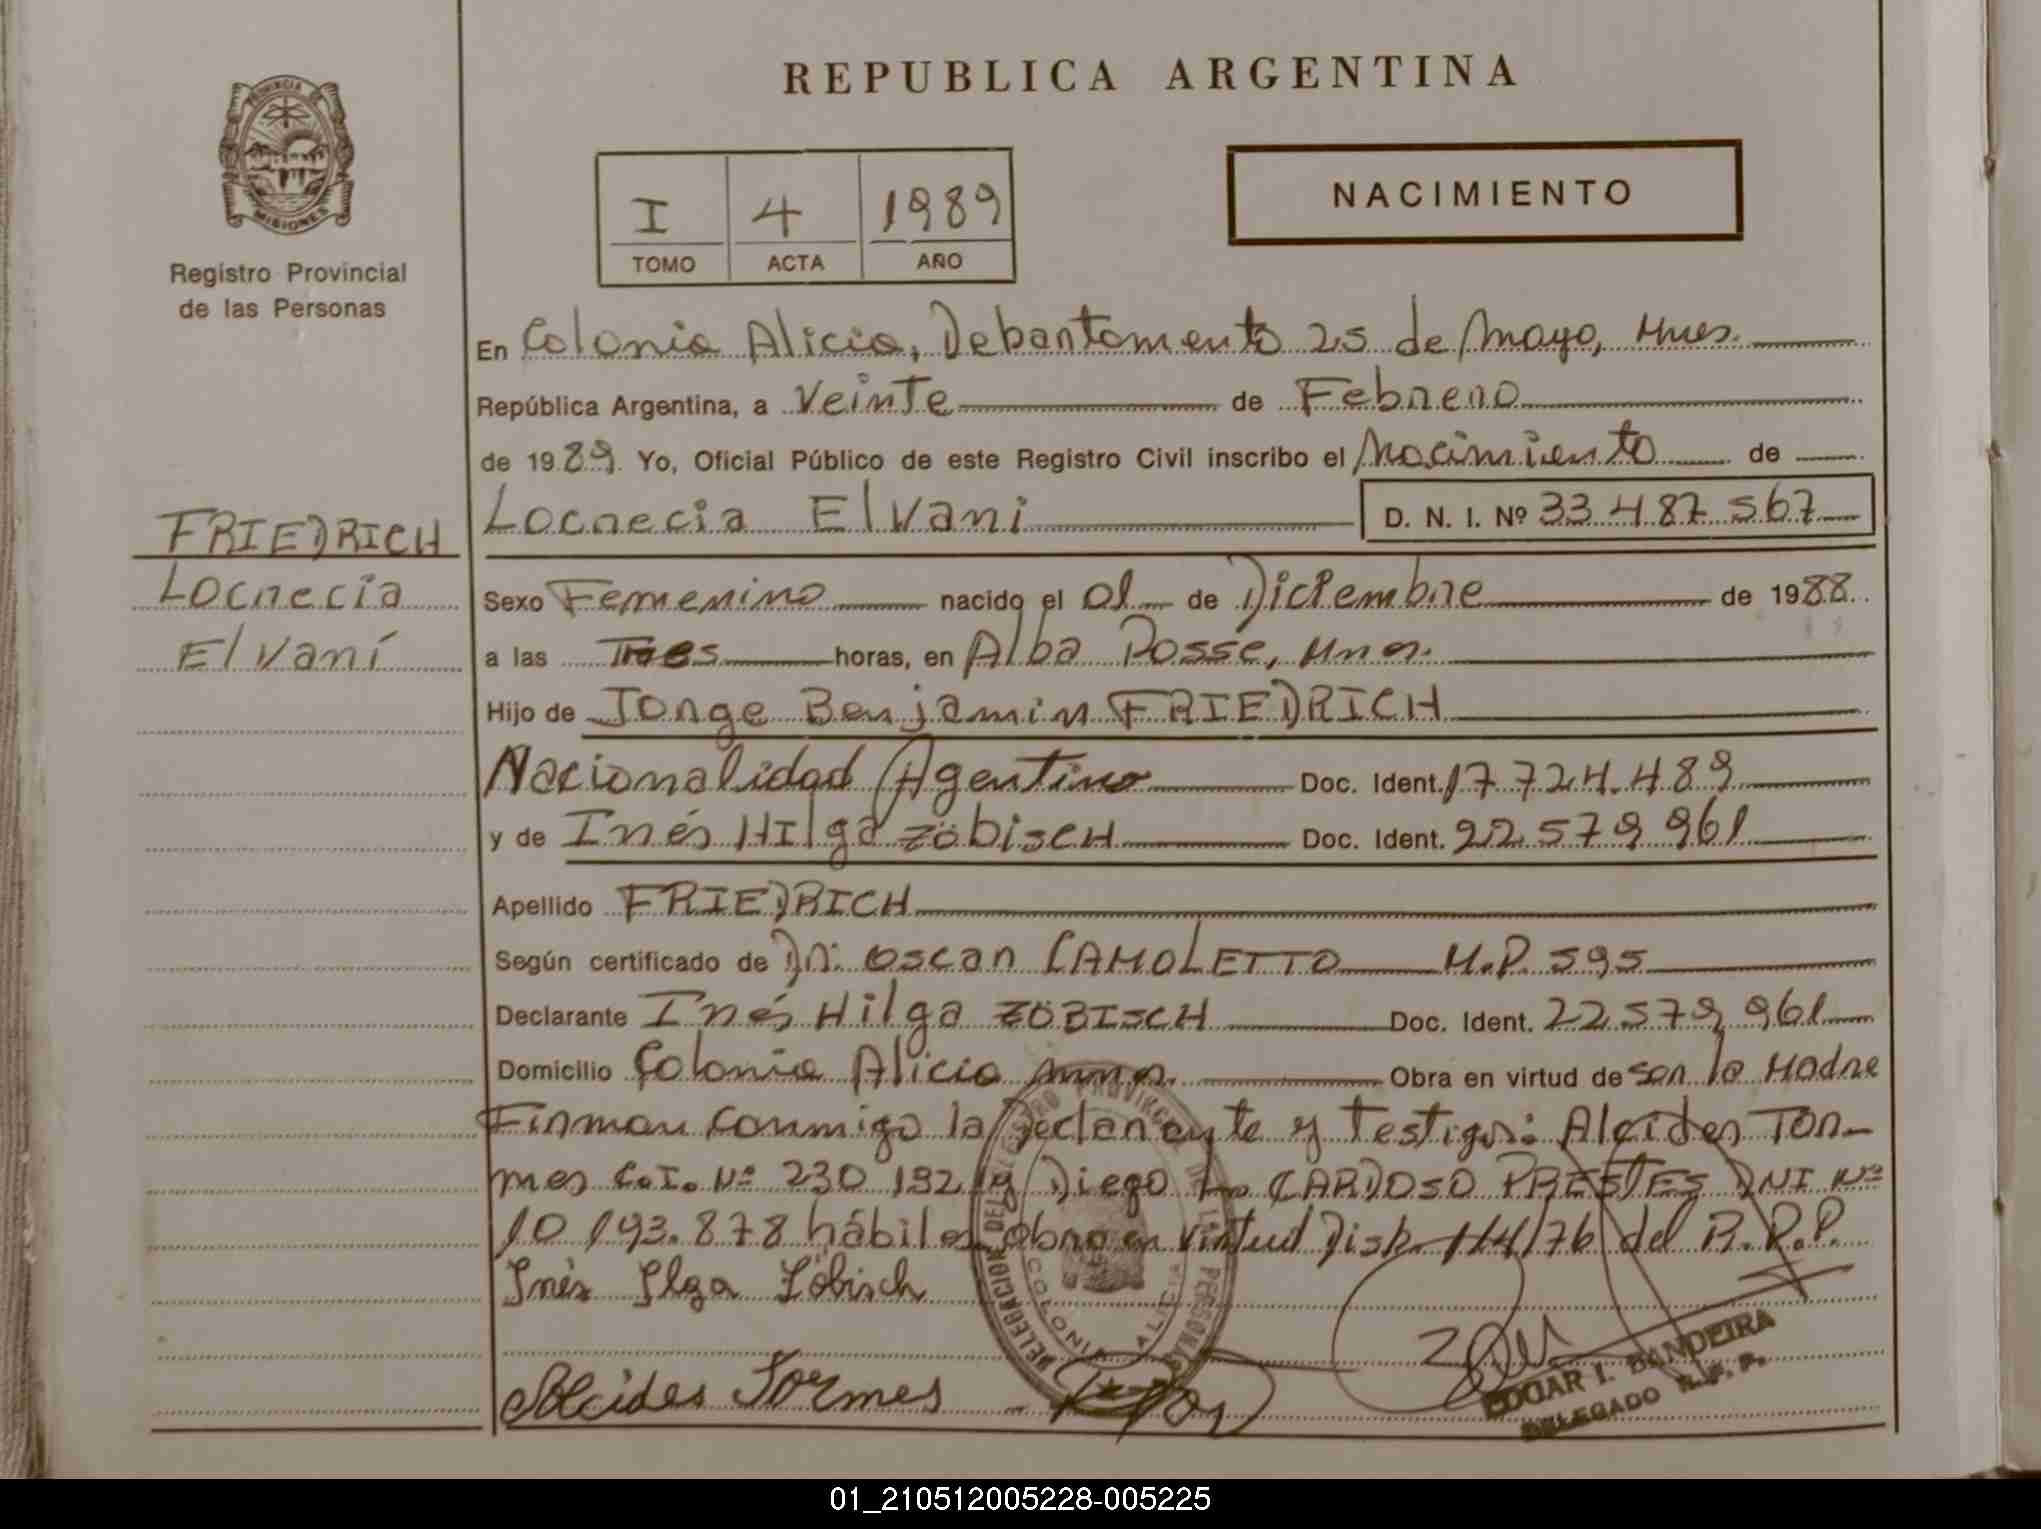 REPUBLICA ARGENTINA
PROVINCIA DE
MISIONES
Registro Provincial
de las Personas
I 4 1989
TOMO ACTA AÑO
NACIMIENTO
En Colonia Alicia, Debantamento 25 de Mayo, Mnes.
República Argentina, a Veinte de Febrero
de 1989. Yo, Oficial Público de este Registro Civil inscribo el Nacimiento de
Locrecia Elvani D. N. I. Nº 33 487 567
FRIEDRICH
Locrecia
Elvaní
Sexo Femenino nacido el 01 de Diciembre de 1988.
a las Tres horas, en Alba Posse, Mnes.
Hijo de Jorge Benjamin FRIEDRICH
Nacionalidad Agentino Doc. Ident. 17 724.489
y de Inés HIlga ZöbiscH Doc. Ident. 22 579 961
Apellido FRIEDRICH
Según certificado de Dr. Oscar CAMOLETTO M.P. 595
Declarante Inés Hilga ZÖBISCH Doc. Ident. 22 579 961
Domicilio Colonia Alicia Mnes. Obra en virtud de ser la Madre
Firman conmigo la Declarante y Testigos: Alcides Tor-
mes C.I. Nº 230 192 y Diego CARDOSO PRESTES DNI Nº
10 193.878 hábiles. Obra en virtud Disp. 114/76 del R.P.P.
Inés Ilga Zöbisch
DELEGACION DEL REGISTRO PROVINCIAL DE LAS PERSONAS
COLONIA ALICIA
Alcides Tormes
EDGAR I. BANDEIRA
DELEGADO R. P. P.
01_210512005228-005225